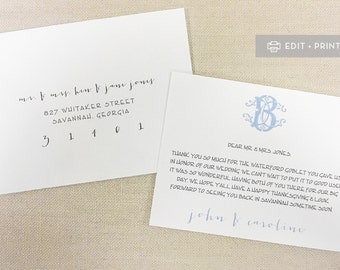 EDIT + PRINT
mr. & mrs. ken & jane jones
827 WHITAKER STREET
SAVANNAH, GEORGIA
31401
B
DEAR MR. & MRS. JONES
THANK YOU SO MUCH FOR THE WATERFORD GOBLET YOU GAVE US
IN HONOR OF OUR WEDDING. WE CAN'T WAIT TO PUT IT TO GOOD USE!
IT WAS SO WONDERFUL HAVING BOTH OF YOU THERE FOR OUR BIG
DAY. WE HOPE Y'ALL HAVE A HAPPY THANKSGIVING & LOOK
FORWARD TO SEEING YOU BACK IN SAVANNAH SOMETIME SOON
john & caroline